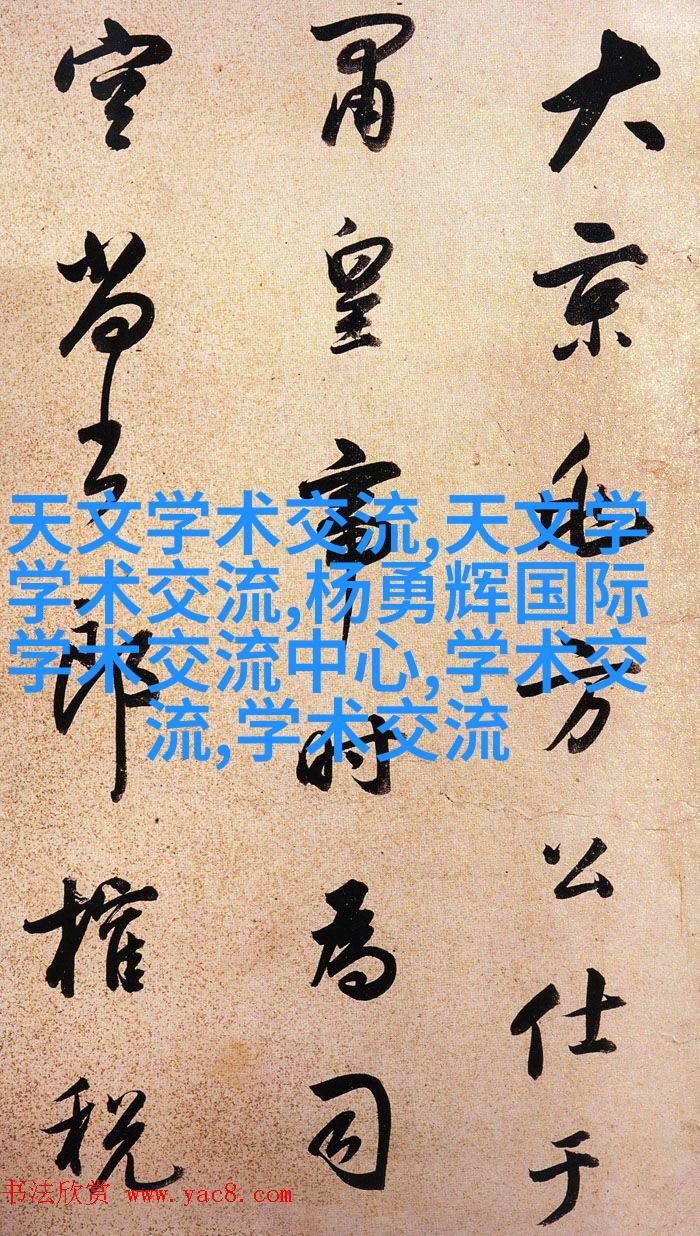 大京兆方公仕于
肅皇帝时為司
空尚書郎榷税
天文学术交流,天文学
学术交流,杨勇辉国际
学术交流中心,学术交
流,学术交流
书法欣赏 www.yac8.com